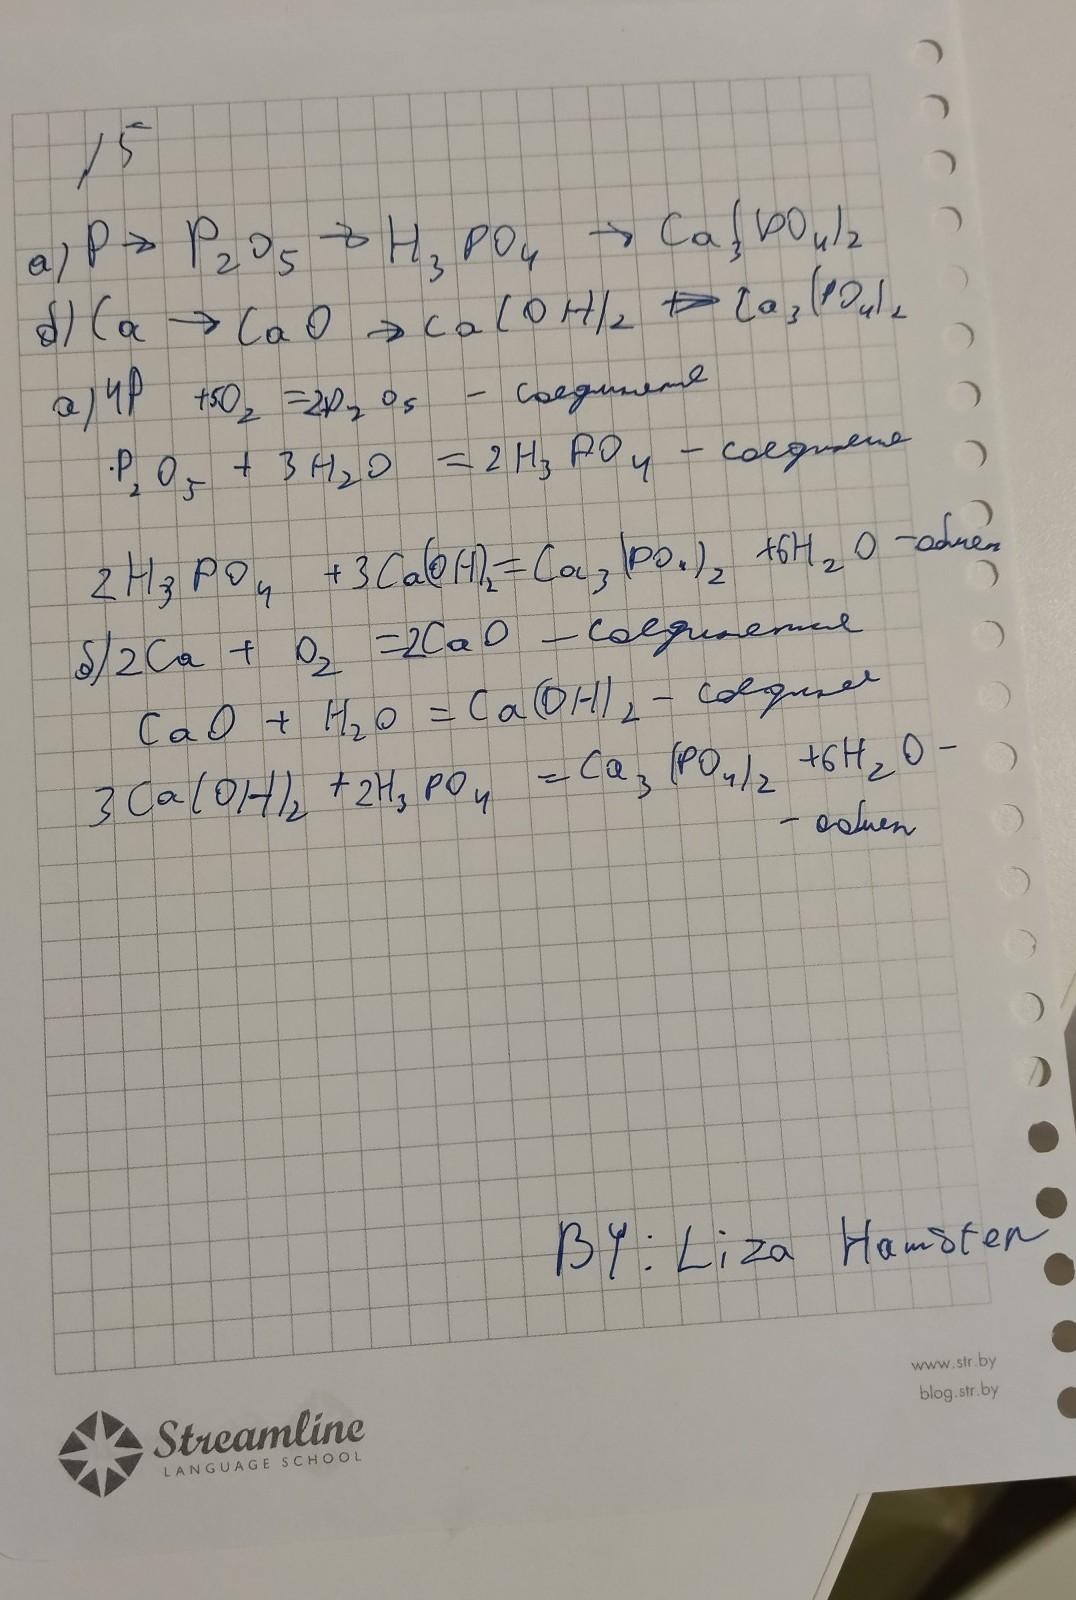 15
а) P → P₂O₅ → H₃PO₄ → Ca₃(PO₄)₂
б) Ca → CaO → Ca(OH)₂ → Ca₃(PO₄)₂
а) 4P +5O₂ =2P₂O₅ - соединение
P₂O₅ + 3H₂O = 2H₃PO₄ - соединение
2H₃PO₄ +3Ca(OH)₂ = Ca₃(PO₄)₂ +6H₂O - обмен
б) 2Ca + O₂ =2CaO - соединение
CaO + H₂O = Ca(OH)₂ - соединение
3Ca(OH)₂ +2H₃PO₄ = Ca₃(PO₄)₂ +6H₂O -
- обмен
BY: Liza Hamster
www.str.by
blog.str.by
Streamline
LANGUAGE SCHOOL